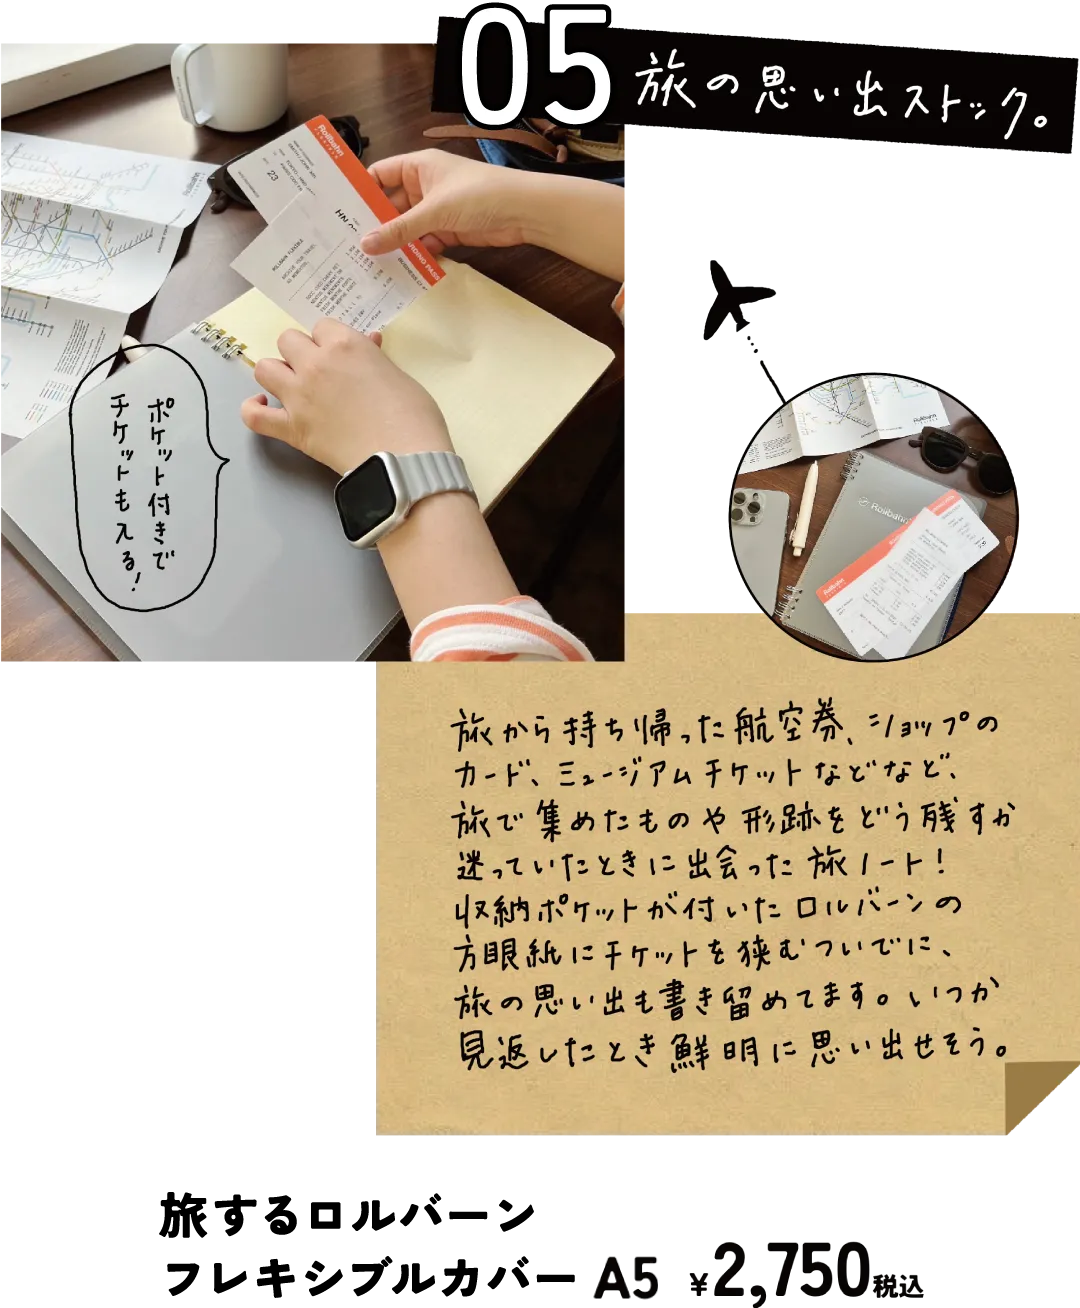 05
旅の思い出ストック。
Rollbahn
23
HN
BOARDING PASS
ポケット付きで
チケットも入る!
Rollbahn
Rollbahn
旅から持ち帰った航空券、ショップの
カード、ミュージアムチケットなどなど、
旅で集めたものや形跡をどう残すか
迷っていたときに出会った旅ノート!
収納ポケットが付いたロルバーンの
方眼紙にチケットを挟むついでに、
旅の思い出も書き留めてます。いつか
見返したとき鮮明に思い出せそう。
旅するロルバーン
フレキシブルカバー A5 ¥2,750税込